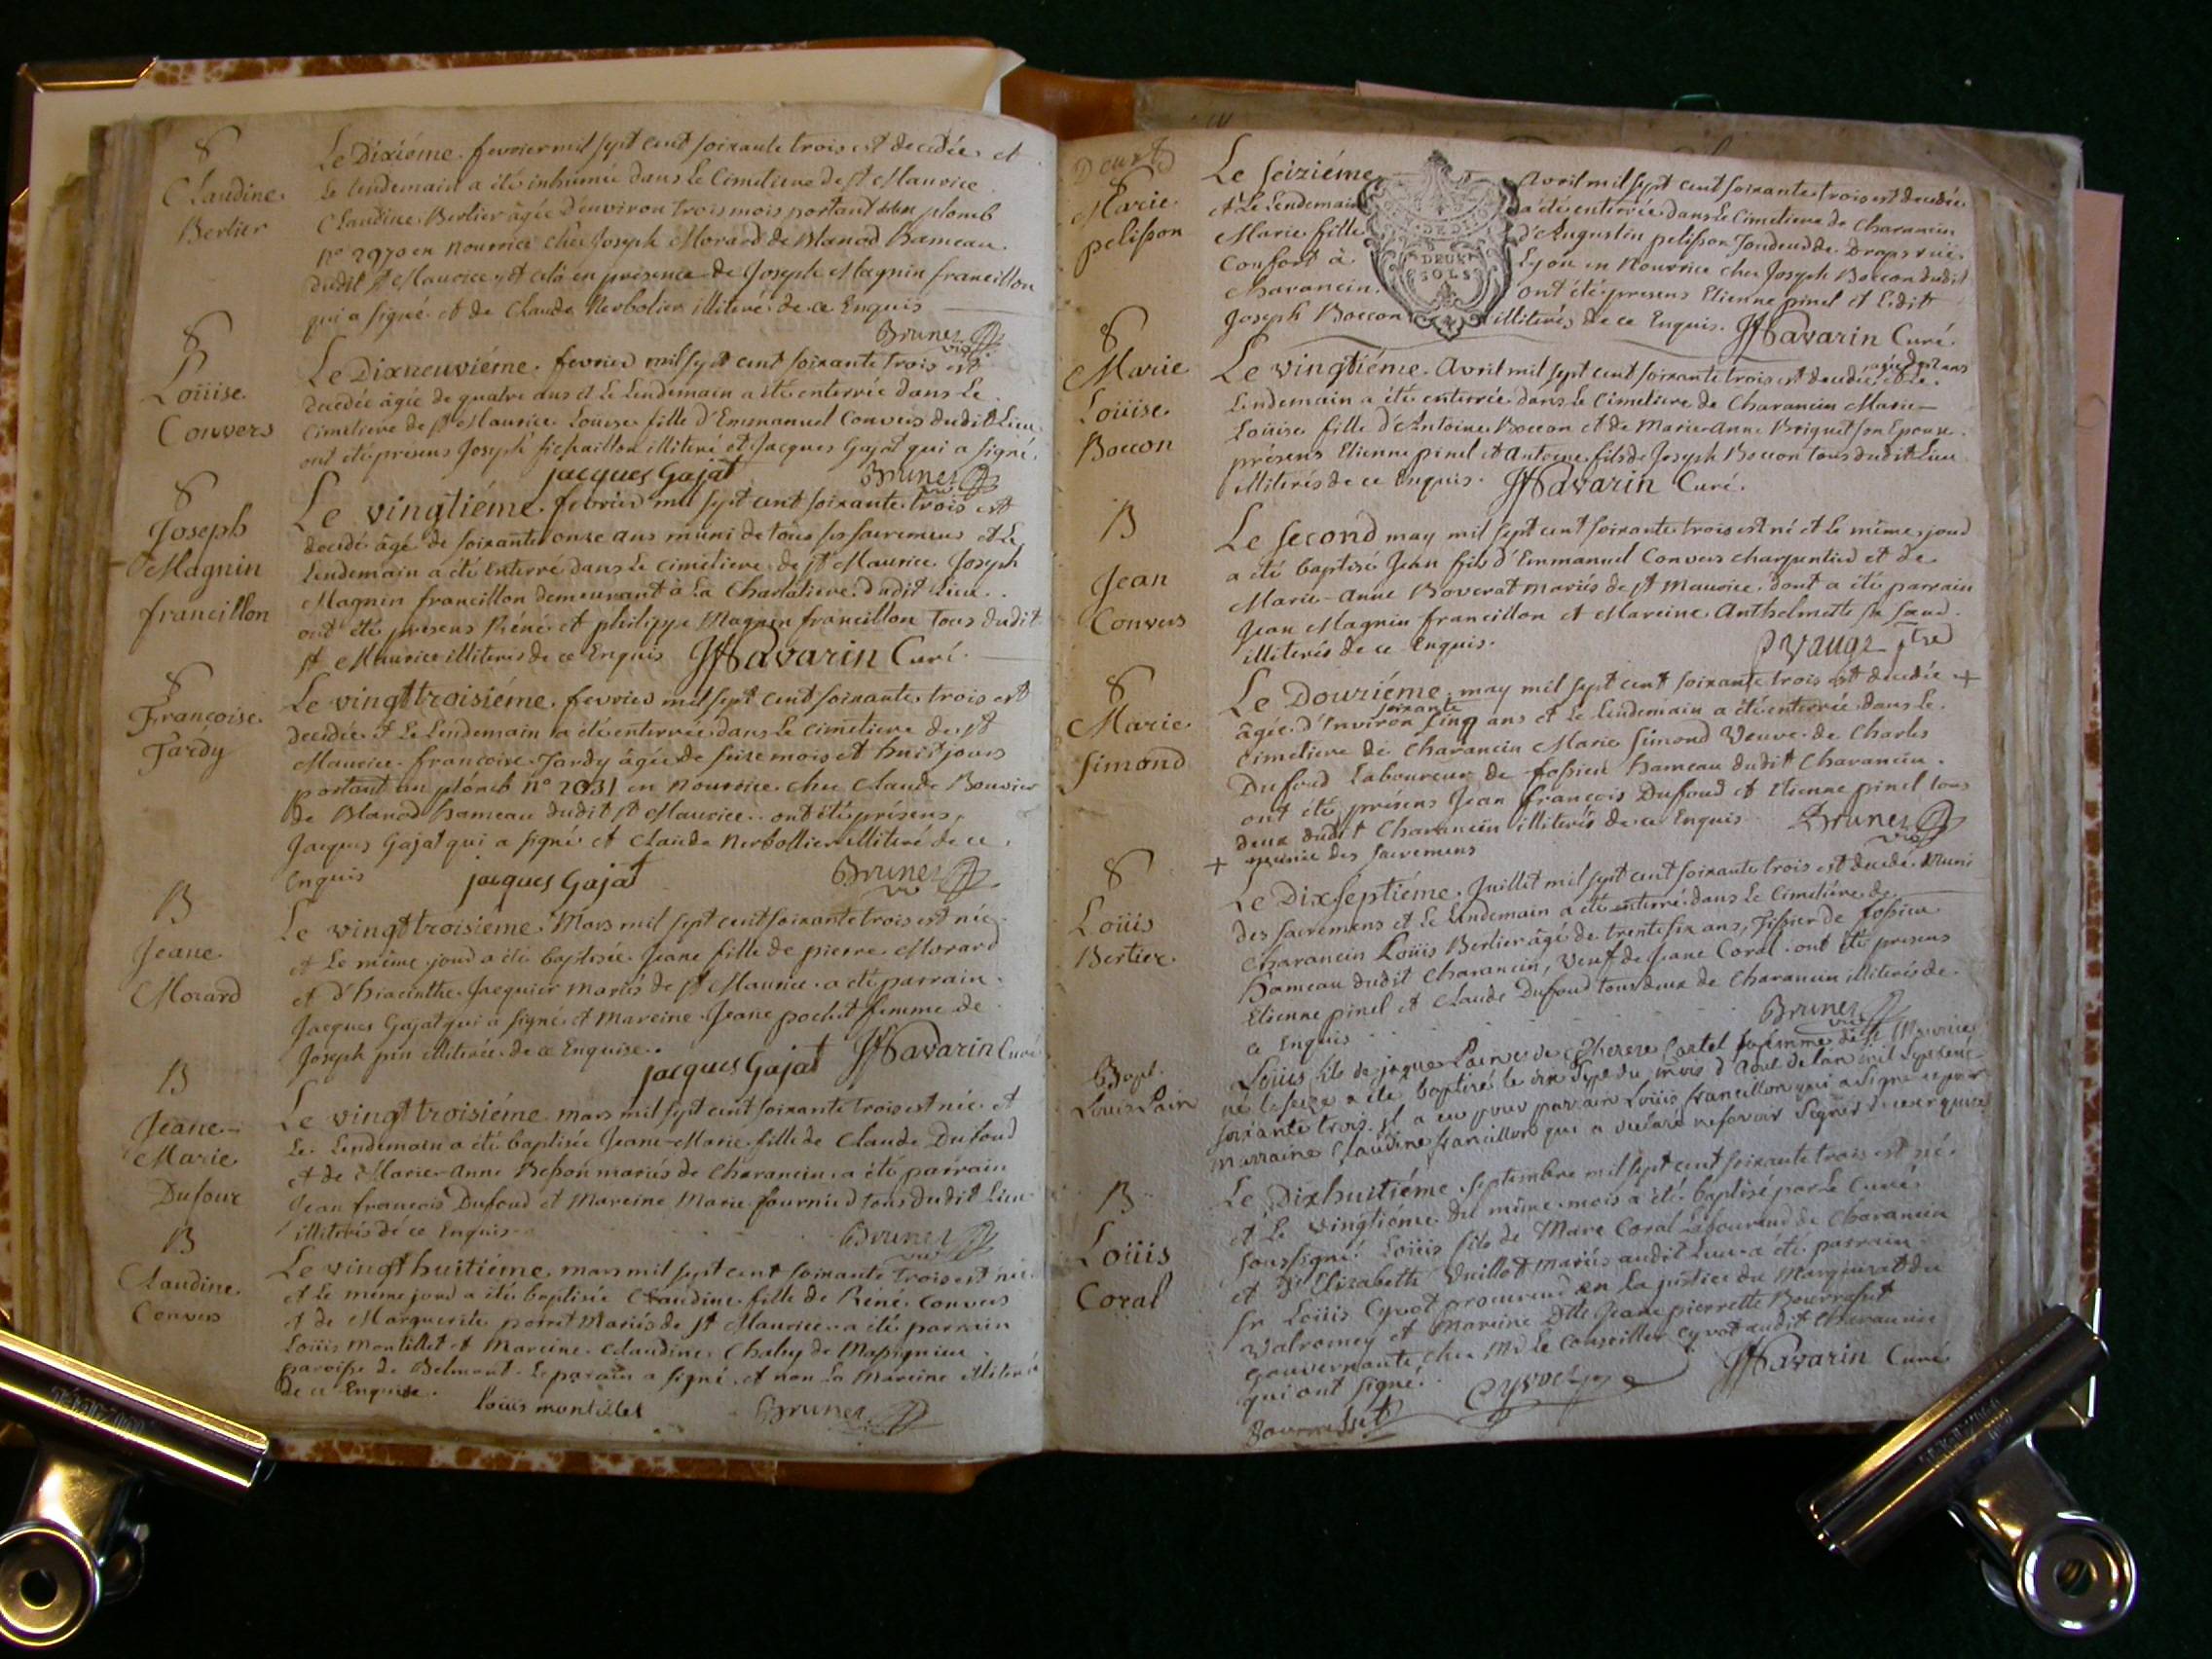 8
Claudine
Berlier
Le Dixiéme fevrier mil sept cent soixante trois est decedée et
le lendemain a été inhumée dans le Cimetiere de st Maurice
Claudine Berlier âgée d'environ trois mois portant un plomb
n° 2970 en nourrice chez Joseph Morard de Blanod hameau
dudit st Maurice, et cela en présence de Joseph Magnin francillon
qui a signé et de Claude Nerbolier illiteré de ce Enquis
Brunet vic
8
Loüise
Convers
Le Dixneuviéme fevrier mil sept cent soixante trois est
decedée âgée de quatre ans et le lendemain a été enterrée dans le
Cimetiere de st Maurice Loüise fille d'Emmanuel Convers dudit Lieu
ont été présens Joseph fichaillon illiteré et Jacques Gajat qui a signé.
jacques Gajat Brunet vic
8
Joseph
Magnin
francillon
Le vingtiéme fevrier mil sept cent soixante trois est
decedé âgé de soixante onze ans muni de tous ses sacremens et le
lendemain a été enterré dans le cimetiere de st Maurice Joseph
Magnin francillon demeurant à la Charlatiere dudit Lieu
ont été présens Réné et philippe Magnin francillon tous dudit
st Maurice illiterés de ce Enquis JfSavarin Curé.
8
Françoise
Tardy
Le vingttroisiéme fevrier mil sept cent soixante trois est
decedée et le lendemain a été enterrée dans le cimetiere de st
Maurice françoise Tardy âgée de seize mois et huit jours
portant un plomb n° 2031 en nourrice chez Claude Bouvier
de Blanod hameau dudit st Maurice ont été présens
Jacques Gajat qui a signé et Claude Nerbollier illiteré de ce
Enquis jacques Gajat Brunet vic
B
Jeane
Morard
Le vingttroisiéme Mars mil sept cent soixante trois est née
et le même jour a été baptisée Jeane fille de pierre Morard
et d'hiacinthe Jacquier mariés de st Maurice a été parrain
Jacques Gajat qui a signé et Mareine Jeane pochet femme de
Joseph pin illiterée de ce Enquise.
jacques Gajat JfSavarin Curé
B
Jeane-
Marie
Dufour
Le vingttroisiéme mars mil sept cent soixante trois est née et
le lendemain a été baptisée Jeane-Marie fille de Claude Dufour
et de Marie-Anne Besson mariés de Charancin a été parrain
Jean françois Dufour et Mareine Marie fournier tous dudit Lieu
illiterés de ce Enquis Brunet vic
B
Claudine
Convers
Le vingthuitiéme mars mil sept cent soixante trois est née
et le même jour a été baptisée Claudine fille de Réné Convers
et de Marguerite porret Mariés de st Maurice a été parrain
Loüis Montillet et Mareine Claudine Chaley de Massignieu
paroisse de Belmont. le parrain a signé et non la Mareine illiterée
de ce Enquise. Loüis montillet Brunet vic
8
Marie
pelisson
Le Seiziéme Avril mil sept cent soixante trois est decedée
et le lendemain a été enterrée dans le Cimetiere de Charancin
Marie fille d'Augustin pelisson Tondeur de Draps rüe
Confort à Lyon en Nourrice chez Joseph Boccon dudit
Charancin. ont été presens Etienne pinel et Ledit
Joseph Boccon illiterés de ce Enquis. JfSavarin Curé.
DEUX
SOLS
8
Marie
Loüise
Boccon
Le vingtiéme Avril mil sept cent soixante trois est decedée et le
lendemain a été enterrée dans le Cimetiere de Charancin Marie
Loüise fille d'Antoine Boccon et de Marie-Anne Briquet son Epouse.
présens Etienne pinel et Antoine fils de Joseph Boccon tous dudit Lieu
illiterés de ce Enquis. JfSavarin Curé.
B
Jean
Convers
Le Second may mil sept cent soixante trois est né et le même jour
a été baptisé Jean fils d'Emmanuel Convers charpentier et de
Marie-Anne Boverat mariés de st Maurice. dont a été parrain
Jean Magnin francillon et Mareine Anthelmette sa sœur.
illiterés de ce Enquis.
8
Marie
Simond
Le Douziéme may mil sept cent soixante trois est decedée +
âgée d'Environ soixante Cinq ans et le lendemain a été enterrée dans le
Cimetiere de Charancin Marie Simond Veuve de Charles
Dufour Laboureur de fossieu hameau dudit Charancin.
ont été présens Jean françois Dufour et Etienne pinel tous
deux dudit Charancin illiterés de ce Enquis Brunet vic
+ munie des sacremens
8
Loüis
Bertier
Le Dixseptiéme Juillet mil sept cent soixante trois est decedé Muni
des sacremens et le lendemain a été enterré dans le Cimetiére de
Charancin Loüis Berlier âgé de trente six ans, Tissier de fossieu
hameau dudit Charancin, Veuf de Jeane Coral. ont été presens
Etienne pinel et Claude Dufour tous deux de Charancin illiterés de
ce Enquis Brunet vic
Bapt.
Louis Pain
Loüis fils de jaque Pain et de Therese Cartel sa femme de st Maurice
né le seize a été baptisés le dix sept du mois d'aout de lan mil sept cent
soixante trois. il a eu pour parrain Loüis francillon qui a signé et pour
marraine Claudine francillon qui a declaré ne savoir signer de ce enquise
B
Loüis
Coral
Le Dixhuitiéme Septembre mil sept cent soixante trois est né
et le vingtiéme du même mois a été baptisé par le Curé
soussigné Loüis fils de Marc Coral Laboureur de Charancin
et d'Elizabeth Vuillot mariés audit Lieu a été parrain
sr Loüis Cyvot procureur en la justice du Marquisat du
Valromey et Mareine Dlle Jeane pierrette Bourrasset
gouvernante chez Mr le Conseiller Cyvot audit Charancin
qui ont signé. Cyvoct JfSavarin Curé